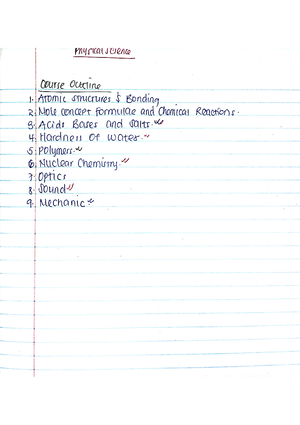 Physical Science
Course Outline
1. Atomic structures & Bonding
2. Mole concept Formulae and Chemical Reactions.
3. Acids Bases and Salts.
4. Hardness Of Water.
5. Polymers.
6. Nuclear Chemistry.
7. Optics
8. Sound
9. Mechanic